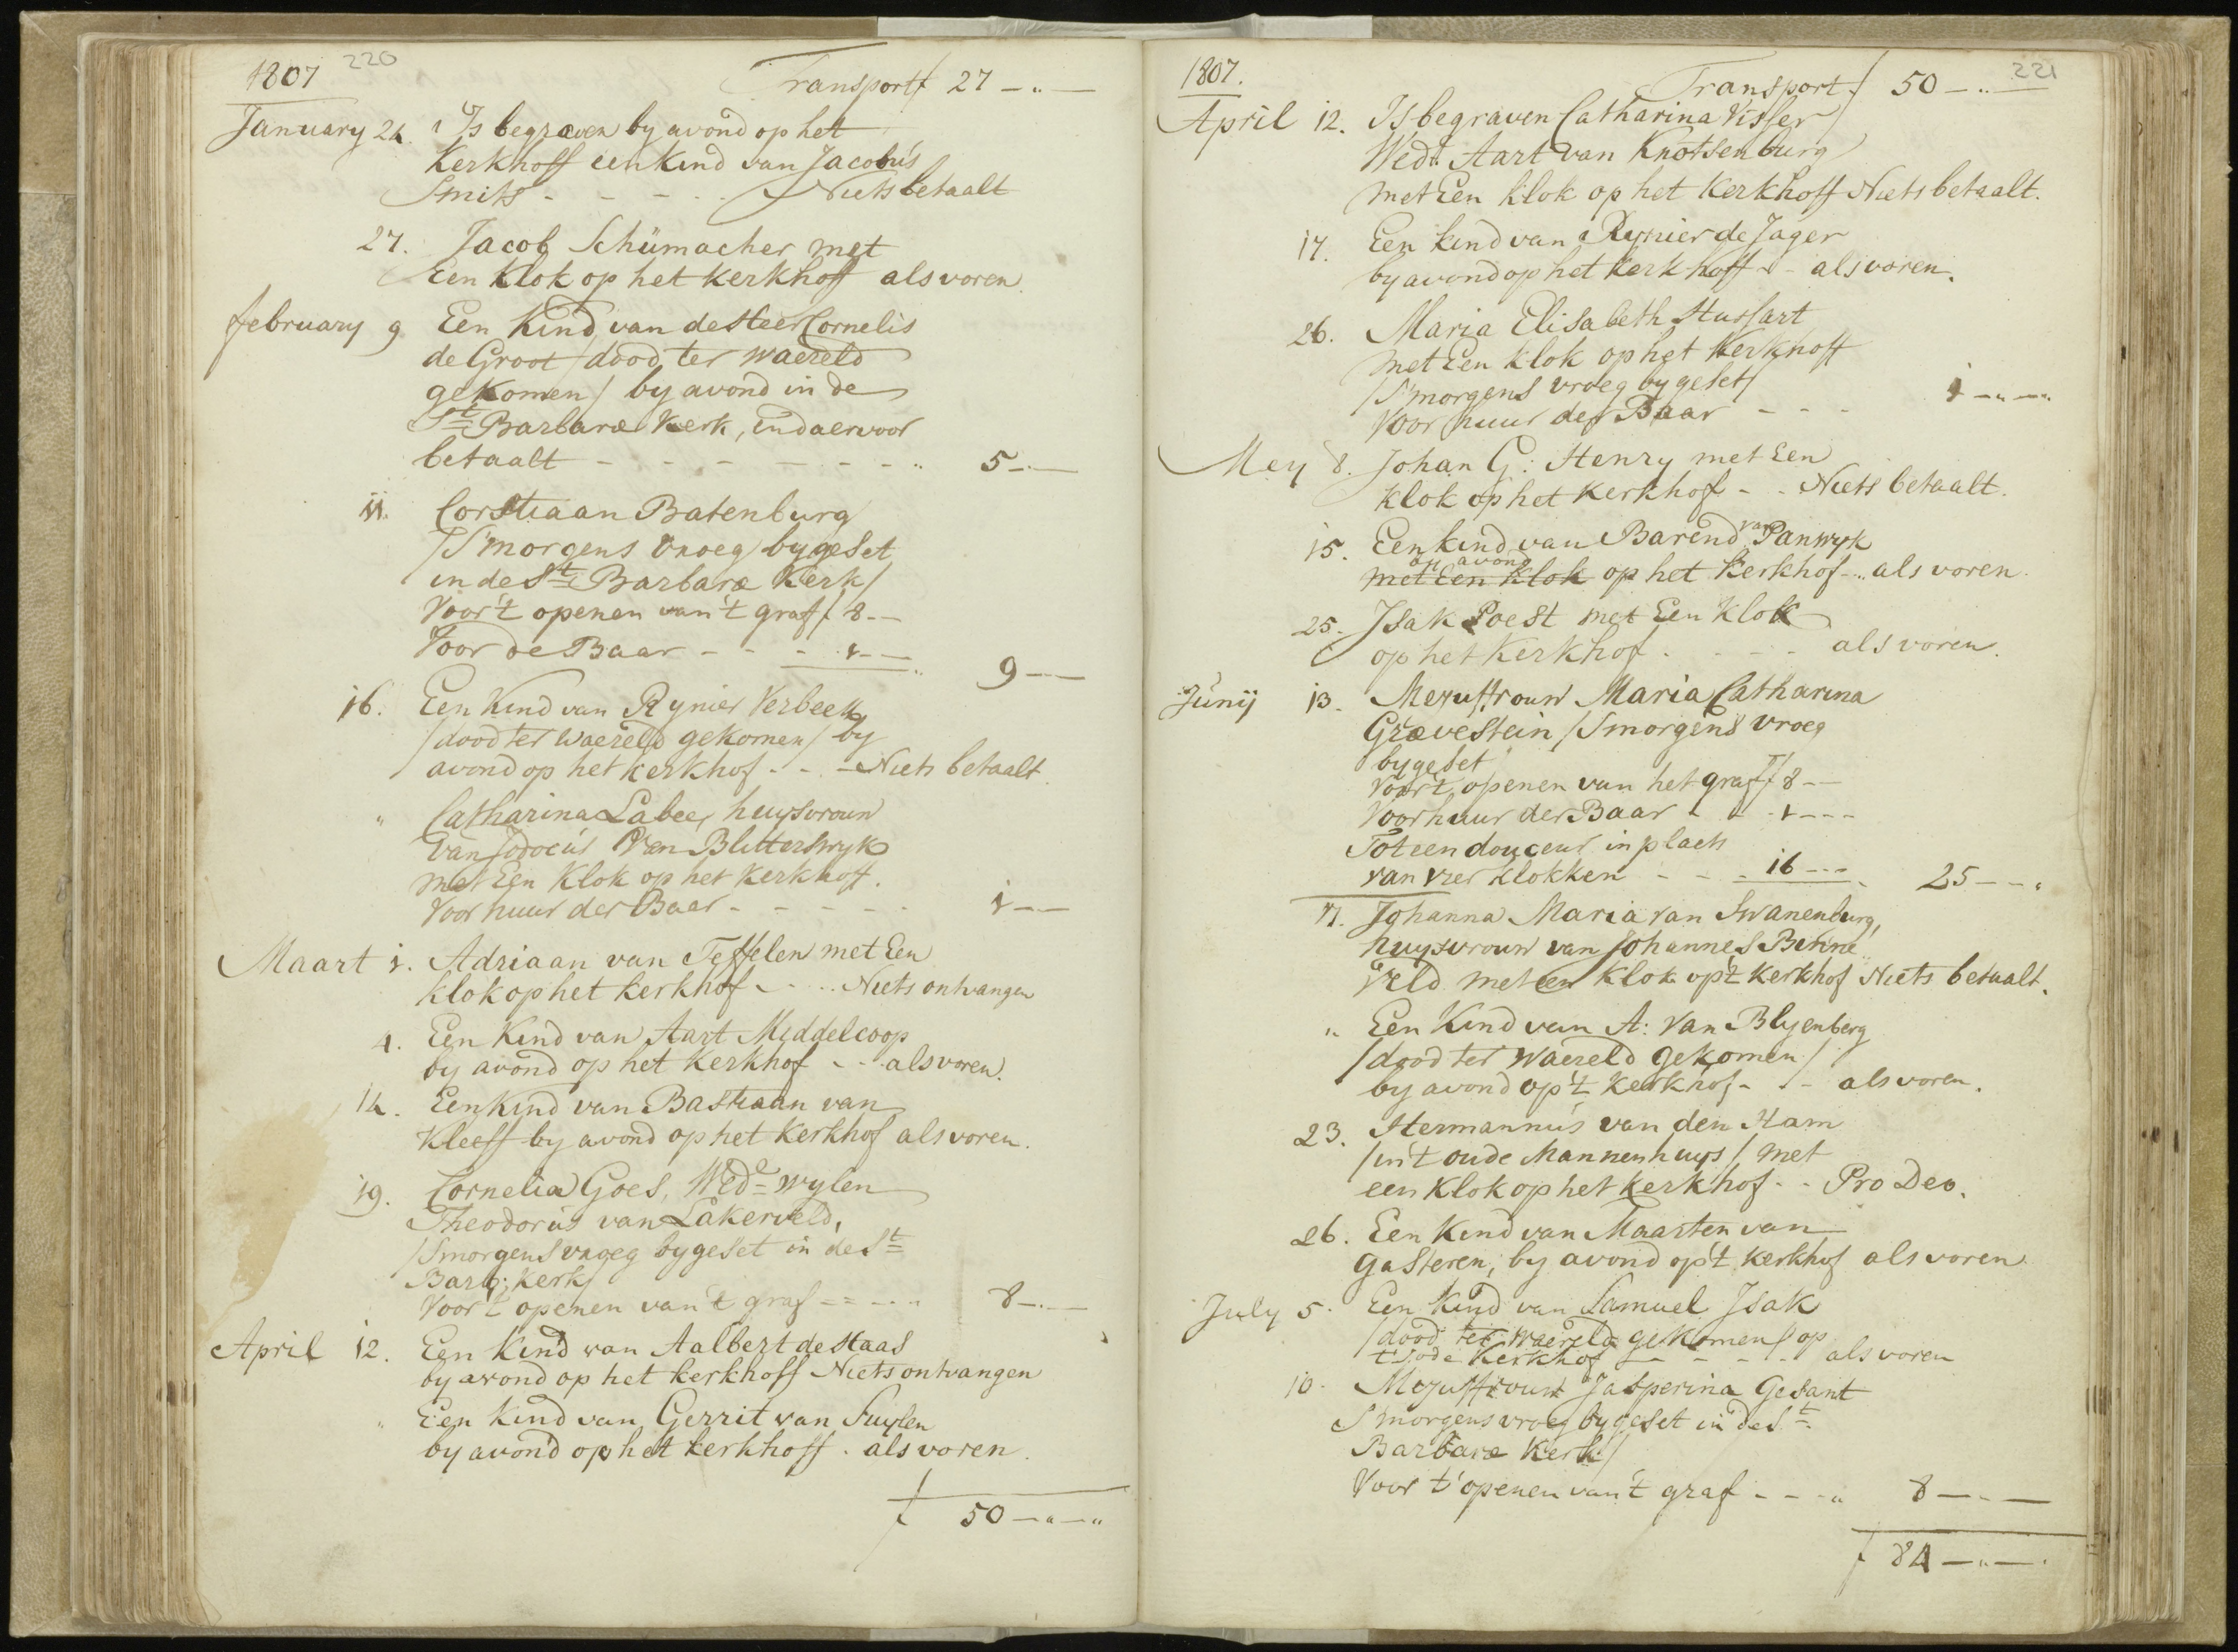 1807 220
Transport f 27 -"-
January 24. Is begraven by avond op het
Kerkhoff een kind van Jacobus
Smits - - - - Niets betaalt
27. Jacob Schümacher met
Een klok op het kerkhoff als voren
february 9 Een Kind van de Heer Cornelis
de Groot / dood ter waereld
gekomen / by avond in de
St. Barbara Kerk, en daervoor
betaalt - - - - - - - 5 -.-
11. Corstiaan Batenburg
/ S'morgens vroeg bygeset
in de St. Barbara Kerk /
Voor 't openen van 't graf f 8.-
Voor de Baar - - - 1 - -
9 - -
16. Een Kind van Rynier Verbeek
/ dood ter waereld gekomen / by
avond op het kerkhof - - - Niets betaalt
" Catharina Labee, huysvrouw
van Jodocus Van Blitterswyk
met Een Klok op het Kerkhoff.
Voor huur der Baar - - - - - 1 - -
Maart 1. Adriaan van Teffelen met Een
klok op het kerkhof - . . . Niets ontvangen
4. Een Kind van Aart Middelcoop
by avond op het Kerkhof - - als voren.
14. Een Kind van Bastiaan van
Kleeff by avond op het Kerkhof als voren.
19. Cornelia Goes, Wede. wylen
Theodorus van Lakerveld,
/ Smorgens vroeg bygeset in de St.
Barb: Kerk /
Voor 't openen van 't graf - - - . . 8 -.-
April 12. Een Kind van Aalbert de Haas
by avond op het kerkhoff Niets ontvangen
" Een Kind van Gerrit van Suylen
by avond op het kerkhoff . als voren.
f 50 -"-"
1807. 221
Transport f 50 -..-
April 12. Is begraven Catharina Visser
Wede. Aart van Knotsenburg
met Een Klok op het Kerkhoff Niets betaalt.
17. Een kind van Rynier de Jager
by avond op het Kerkhoff - - als voren.
26. Maria Elisabeth Hussart
met Een klok op het Kerkhoff
/ S'morgens vroeg bygeset /
Voor huur der Baar - - - 1 -"-"
Mey 8. Johan G: Henry met Een
klok op het Kerkhof - . Niets betaalt.
15. Een kind van Barend van Panwyk
by avond
met Een klok op het Kerkhof - .. als voren.
25. Isak Poest met Een Klok
op het Kerkhof . - - - als voren.
Junij 13. Mejuffrouw Maria Catharina
Gravestein / Smorgens vroeg
bygeset /
Voor 't openen van het graf f 8 - -
Voor huur der Baar - - 1 - - -
Tot een douceur in plaets
van vier klokken - - - 16 - - - 25 - - "
17. Johanna Maria van Swanenburg,
huysvrouw van Johannes Benne
veld met een klok op 't kerkhof Niets betaalt.
" Een Kind van A: Van Blyenberg
/ dood ter waereld gekomen /
by avond op 't kerkhof - - - als voren.
23. Hermannus van den Ham
/ in 't oude Mannenhuys / met
een Klok op het kerkhof - - Pro Deo.
26. Een Kind van Maarten van
Gasteren, by avond op 't kerkhof als voren
July 5. Een Kind van Samuel Isak
/ dood ter waereld gekomen / op
't Jode Kerkhof - - - - als voren
10. Mejuffrouw Jasperina Gesant
S'morgens vroeg bygeset in de St.
Barbara Kerk /
Voor 't openen van 't graf - - - " 8 - - -
f 84 -"-